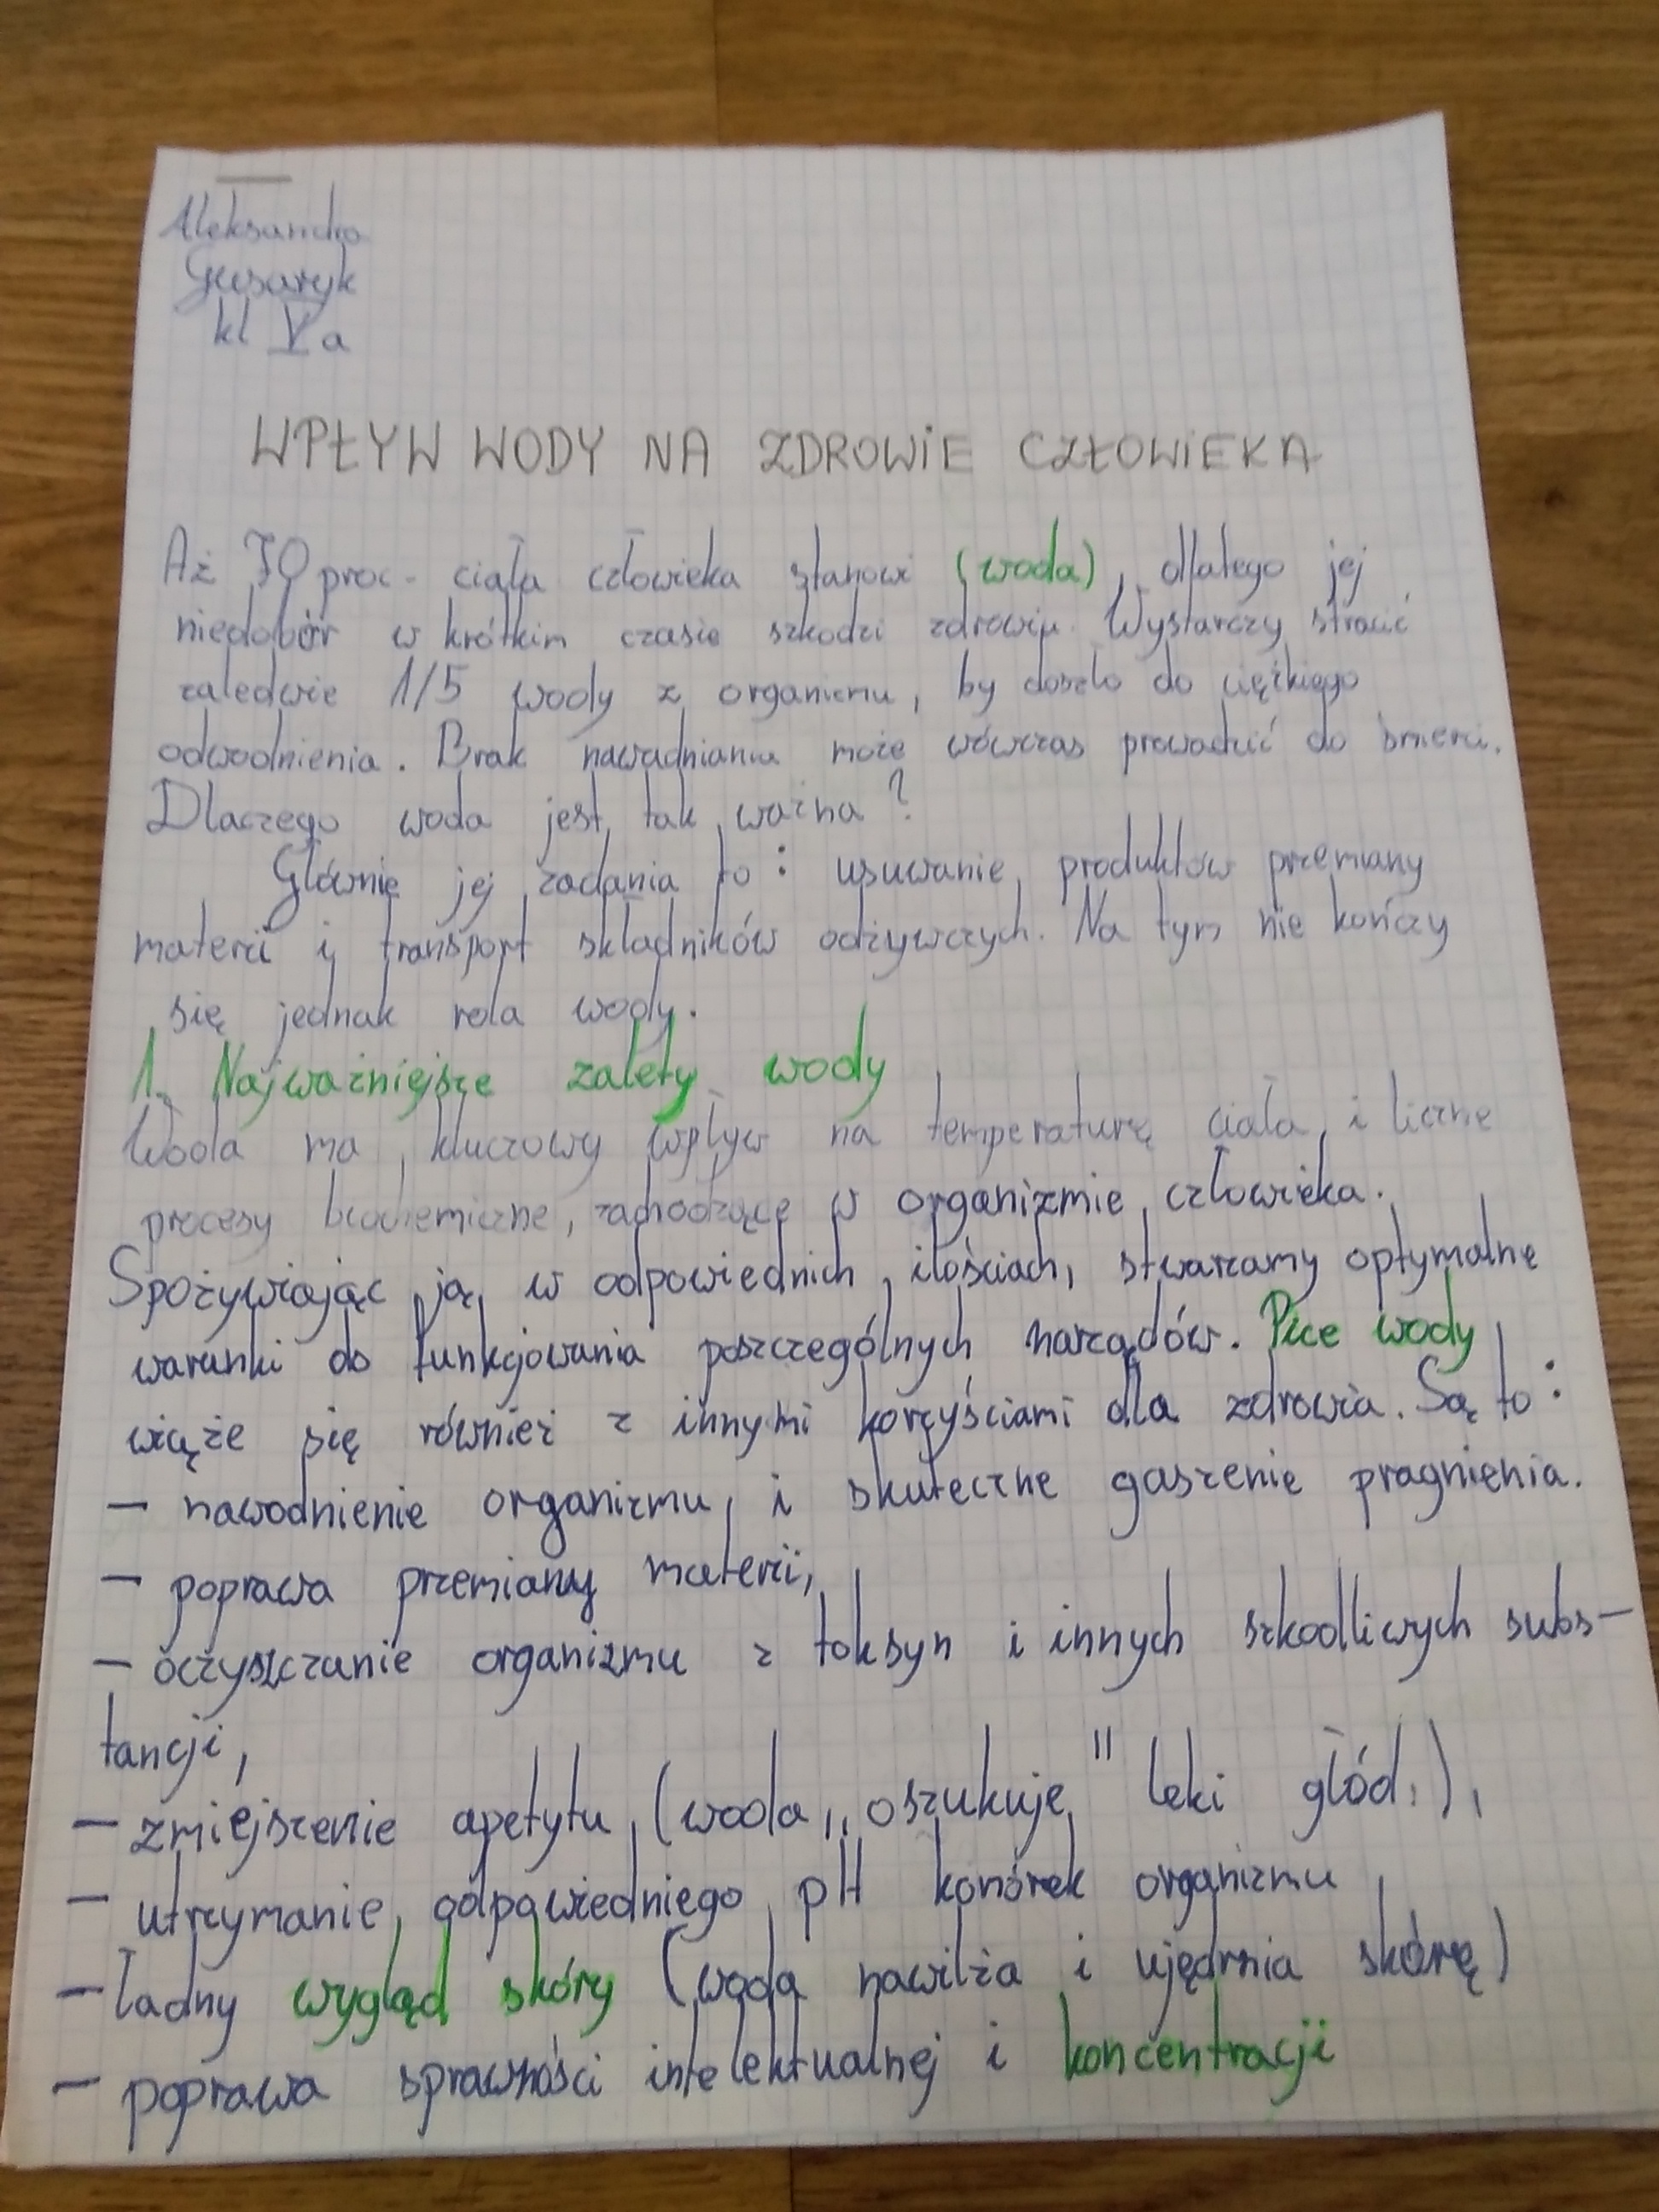 Aleksandra
Gusaryk
kl V a
WPŁYW WODY NA ZDROWIE CZŁOWIEKA
Aż 70 proc. ciała człowieka stanowi (woda), dlatego jej
niedobór w krótkim czasie szkodzi zdrowiu. Wystarczy stracić
zaledwie 1/5 wody z organizmu, by doszło do ciężkiego
odwodnienia. Brak nawadniania może wówczas prowadzić do śmierci.
Dlaczego woda jest tak ważna?
Głównie jej zadania to: usuwanie produktów przemiany
materii i transport składników odżywczych. Na tym nie kończy
się jednak rola wody.
1. Najważniejsze zalety wody
Woda ma kluczowy wpływ na temperaturę ciała i liczne
procesy biochemiczne, zachodzące w organizmie człowieka.
Spożywiając ją w odpowiednich ilościach, stwarzamy optymalne
warunki do funkcjowania poszczególnych narządów. Picie wody
wiąże się również z innymi korzyściami dla zdrowia. Są to:
- nawodnienie organizmu i skuteczne gaszenie pragnienia.
- poprawa przemiany materii,
- oczyszczanie organizmu z toksyn i innych szkodliwych subs-
tancji,
- zmiejszenie apetytu (woda „oszukuje" leki głód.),
- utrzymanie odpowiedniego pH komórek organizmu
- ładny wygląd skóry (woda nawilża i ujędrnia skórę)
- poprawa sprawności intelektualnej i koncentracji